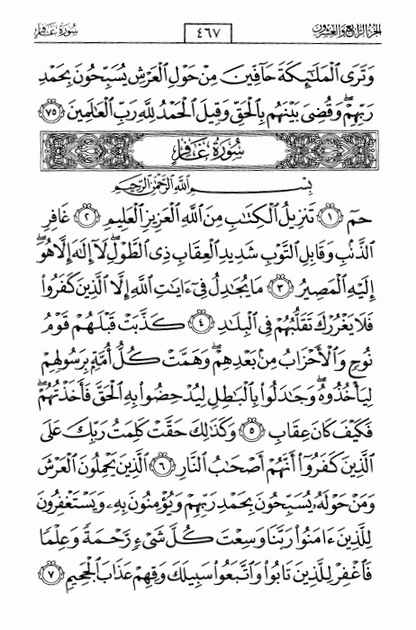 الجزء الرابع والعشرون ٤٦٧ سورة غافر
وَتَرَى ٱلْمَلَٰٓئِكَةَ حَآفِّينَ مِنْ حَوْلِ ٱلْعَرْشِ يُسَبِّحُونَ بِحَمْدِ
رَبِّهِمْ ۖ وَقُضِىَ بَيْنَهُم بِٱلْحَقِّ وَقِيلَ ٱلْحَمْدُ لِلَّهِ رَبِّ ٱلْعَٰلَمِينَ ٧٥
سورة غافر
بِسْمِ ٱللَّهِ ٱلرَّحْمَٰنِ ٱلرَّحِيمِ
حمٓ ١ تَنزِيلُ ٱلْكِتَٰبِ مِنَ ٱللَّهِ ٱلْعَزِيزِ ٱلْعَلِيمِ ٢ غَافِرِ
ٱلذَّنۢبِ وَقَابِلِ ٱلتَّوْبِ شَدِيدِ ٱلْعِقَابِ ذِى ٱلطَّوْلِ ۖ لَآ إِلَٰهَ إِلَّا هُوَ ۖ
إِلَيْهِ ٱلْمَصِيرُ ٣ مَا يُجَٰدِلُ فِىٓ ءَايَٰتِ ٱللَّهِ إِلَّا ٱلَّذِينَ كَفَرُوا۟
فَلَا يَغْرُرْكَ تَقَلُّبُهُمْ فِى ٱلْبِلَٰدِ ٤ كَذَّبَتْ قَبْلَهُمْ قَوْمُ
نُوحٍ وَٱلْأَحْزَابُ مِنۢ بَعْدِهِمْ ۖ وَهَمَّتْ كُلُّ أُمَّةٍۭ بِرَسُولِهِمْ
لِيَأْخُذُوهُ ۖ وَجَٰدَلُوا۟ بِٱلْبَٰطِلِ لِيُدْحِضُوا۟ بِهِ ٱلْحَقَّ فَأَخَذْتُهُمْ ۖ
فَكَيْفَ كَانَ عِقَابِ ٥ وَكَذَٰلِكَ حَقَّتْ كَلِمَتُ رَبِّكَ عَلَى
ٱلَّذِينَ كَفَرُوٓا۟ أَنَّهُمْ أَصْحَٰبُ ٱلنَّارِ ٦ ٱلَّذِينَ يَحْمِلُونَ ٱلْعَرْشَ
وَمَنْ حَوْلَهُۥ يُسَبِّحُونَ بِحَمْدِ رَبِّهِمْ وَيُؤْمِنُونَ بِهِۦ وَيَسْتَغْفِرُونَ
لِلَّذِينَ ءَامَنُوا۟ رَبَّنَا وَسِعْتَ كُلَّ شَىْءٍ رَّحْمَةً وَعِلْمًا
فَٱغْفِرْ لِلَّذِينَ تَابُوا۟ وَٱتَّبَعُوا۟ سَبِيلَكَ وَقِهِمْ عَذَابَ ٱلْجَحِيمِ ٧